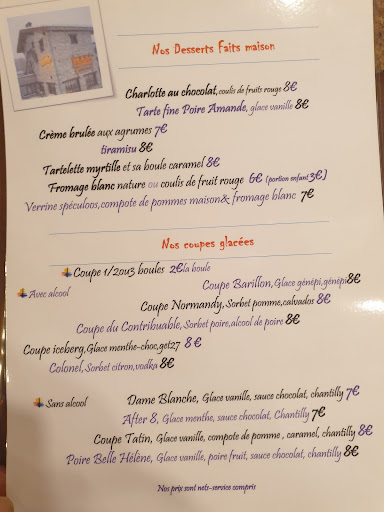 Nos Desserts Faits maison
Charlotte au chocolat, coulis de fruits rouge 8€
Tarte fine Poire Amande, glace vanille 8€
Crème brulée aux agrumes 7€
tiramisu 8€
Tartelette myrtille et sa boule caramel 8€
Fromage blanc nature ou coulis de fruit rouge 6€ (portion enfant 3€)
Verrine spéculoos,compote de pommes maison& fromage blanc 7€
Nos coupes glacées
Coupe 1/2ou3 boules 2€la boule
Avec alcool
Coupe Barillon, Glace génépi,génépi8€
Coupe Normandy, Sorbet pomme,calvados 8€
Coupe du Contribuable, Sorbet poire,alcool de poire 8€
Coupe iceberg,Glace menthe-choc,get27 8€
Colonel, Sorbet citron,vodka 8€
Sans alcool
Dame Blanche, Glace vanille, sauce chocolat, chantilly 7€
After 8, Glace menthe, sauce chocolat, Chantilly 7€
Coupe Tatin, Glace vanille, compote de pomme , caramel, chantilly 8€
Poire Belle Hélène, Glace vanille, poire fruit, sauce chocolat, chantilly 8€
Nos prix sont nets-service compris